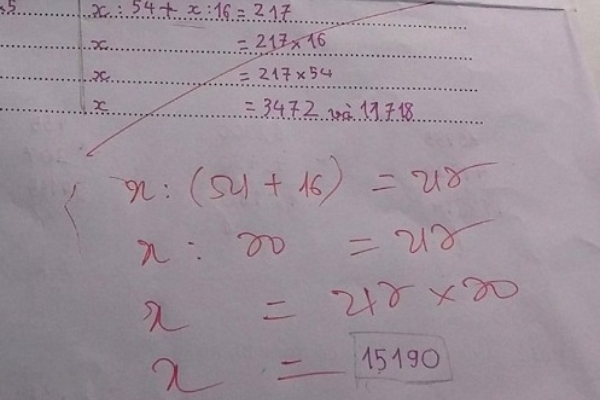 5 x : 54 + x : 16 = 217
x = 217 x 16
x = 217 x 54
x = 3472 và 11718
x : (54 + 16) = 217
x : 70 = 217
x = 217 x 70
x = 15190